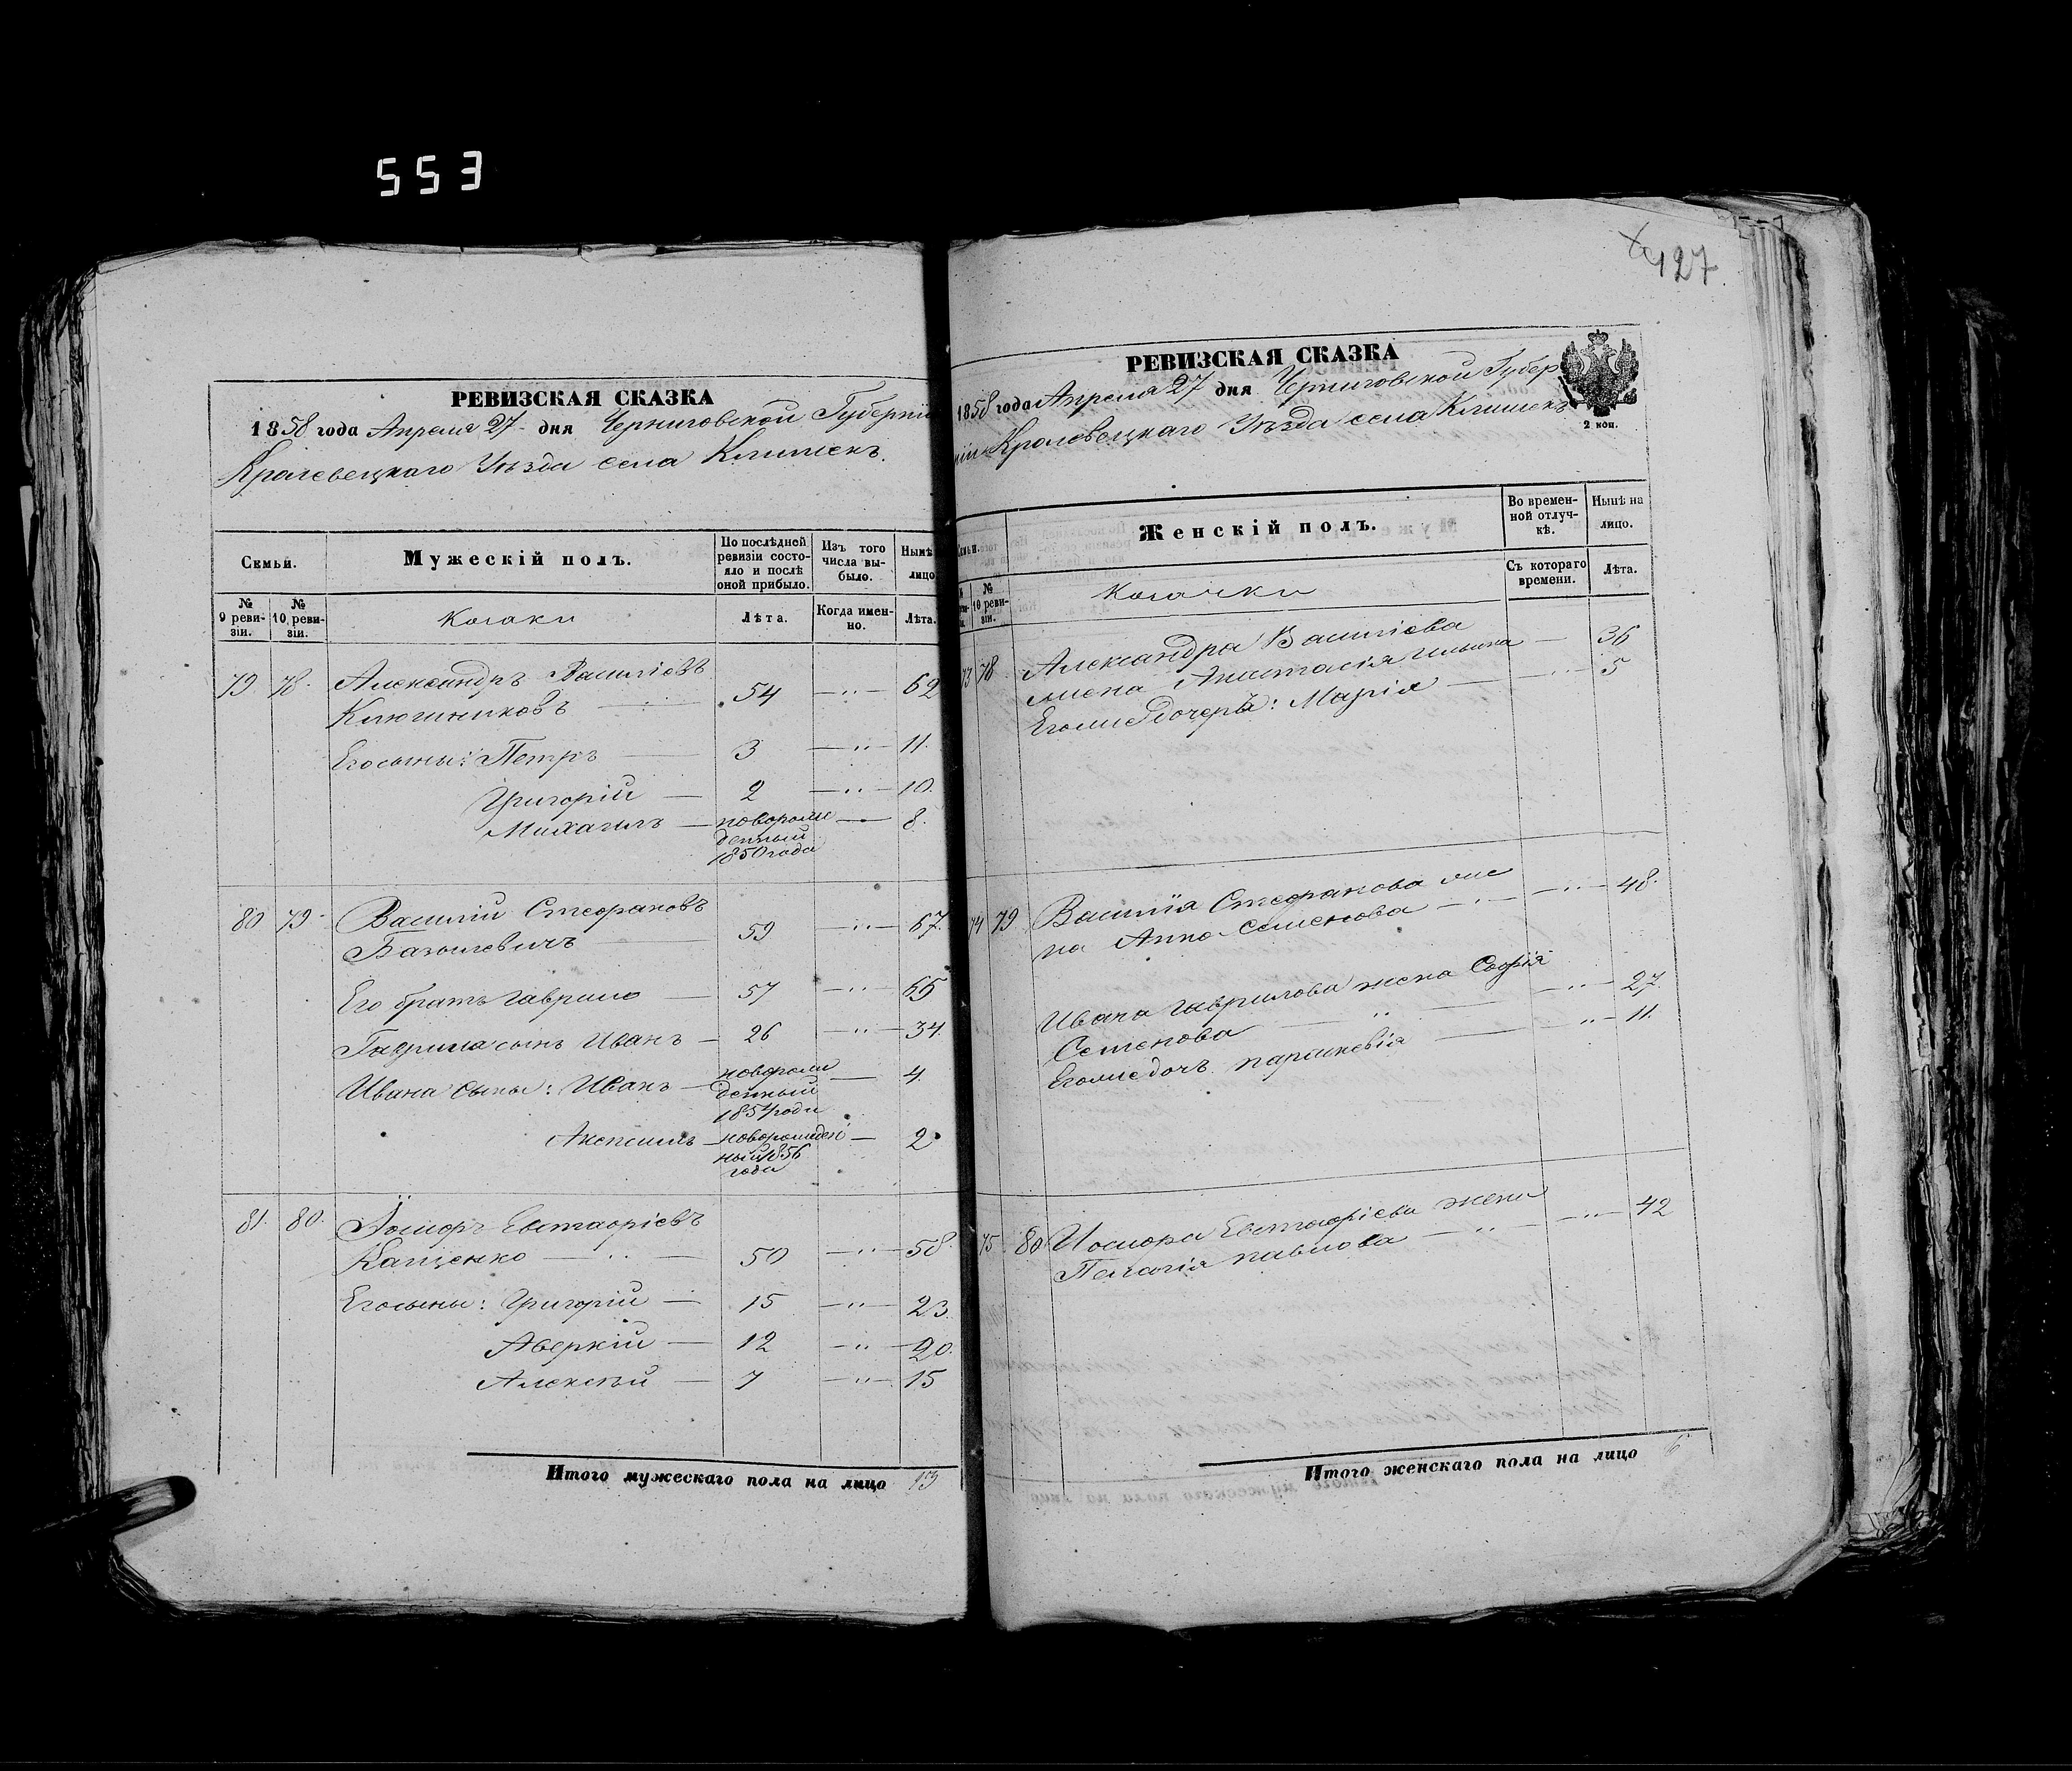 553
127
РЕВИЗСКАЯ СКАЗКА
1858 года Апреля 27 дня Черниговской Губерніи
Кролевецкаго Уѣзда села Клишекъ.
Семьи.
Мужескій полъ.
По послѣдней ревизіи состояло и послѣ оной прибыло.
Изъ того числа выбыло.
Нынѣ лицо
№ 9 ревизіи.
№ 10 ревизіи.
Козаки
Лѣта.
Когда именно.
Лѣта.
79. 78. Александръ Василіевъ
Ключниковъ 54 — 62
Его сыны: Петръ — 3 — 11.
Григорій — 2 — 10.
Михаилъ — новорож — 8.
денный
1850 года
80 79. Василій Стефановъ
Базилевичъ 59 — 67.
Его братъ Гаврило — 57 — 65
Гаврила сынъ Иванъ — 26 — 34.
Ивана сыны: Иванъ — новорож — 4.
денный
1854 года
новорожден — 2
ный 1856
года
81. 80. Іосифъ Евстафіевъ
Кащенко 50 — 58.
Его сыны: Григорій — 15 — 23.
Аверкій — 12 — 20.
Алексѣй — 7 — 15
Итого мужескаго пола на лицо 13
РЕВИЗСКАЯ СКАЗКА
1858 года Апреля 27 дня Черниговской Губер
ніи Кролевецкаго Уѣзда села Клишекъ
2 коп.
Семьи.
Женскій полъ.
Во временной отлучкѣ.
Нынѣ на лицо.
№ 10 ревизіи.
Козачки
Съ котораго времени.
Лѣта.
73 78 Александра Василіева
жена Анастасія Ильина — 36
Его же дочерь: Марія — 5
74 79 Василія Стефанова же
на Анна Семенова — 48.
Ивана Гаврилова жена Софія
Семенова — 27.
Его же дочь Параскевія — 11.
75 80 Иосифа Евстафіева жена
Пелагія Павлова — 42
Итого женскаго пола на лицо 6